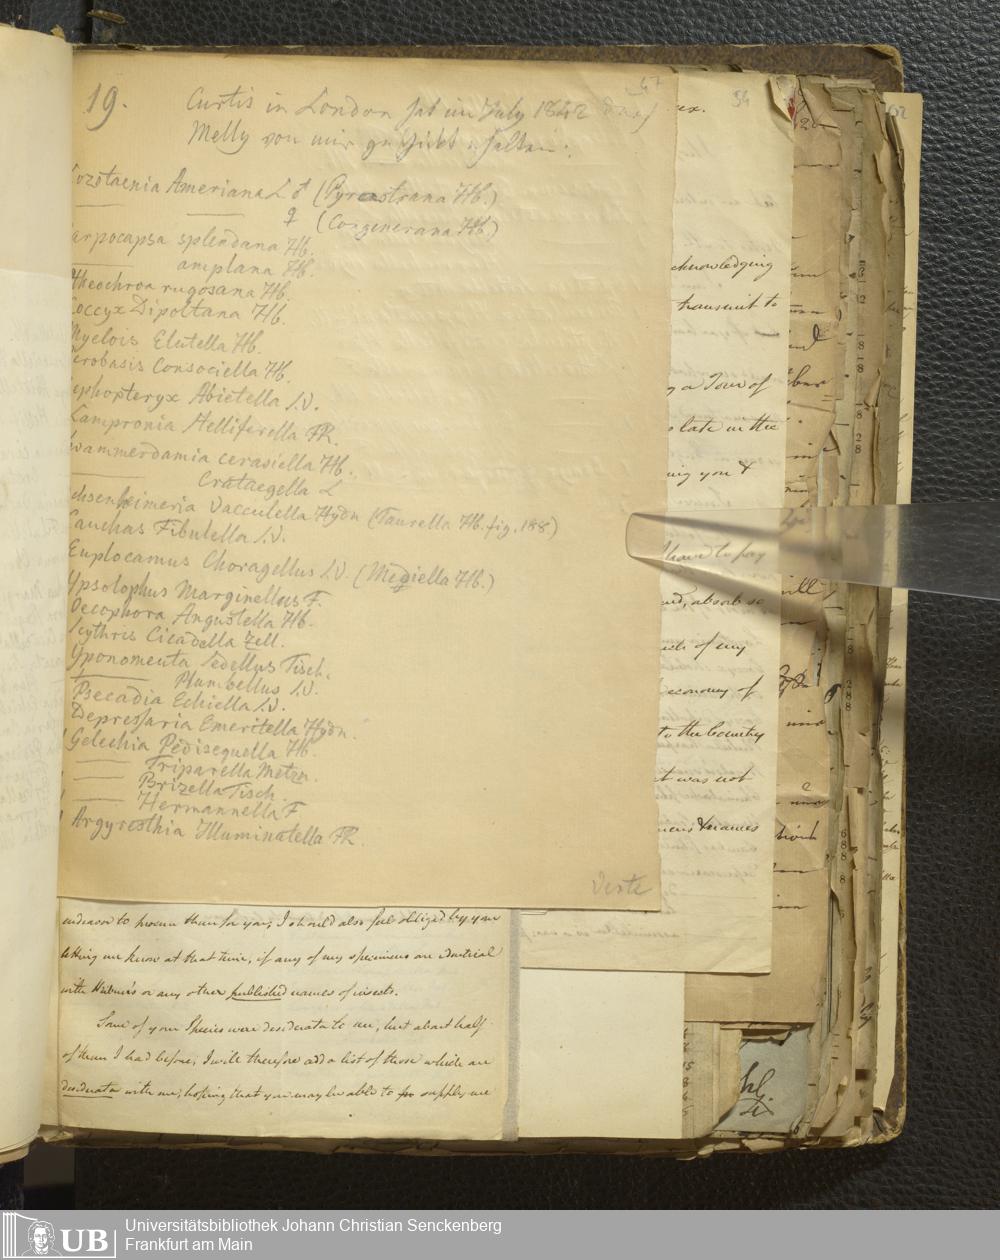 47
19.
Curtis in London hat im July 1842 durch
Melly von mir geschickt erhalten:
Lozotaenia Ameriana L ♂ (Pyrastrana Hb.)
♀ (Congenerana Hb.)
arpocapsa splendana Hb.
amplana Hb.
theochroa rugosana Hb.
occyx Dipoltana Hb.
Myelois Elutella Hb.
crobasis Consociella Hb.
ephopteryx Abietella S.V.
Lampronia Melliferella FR.
wammerdamia cerasiella Hb.
Crataegella L
chsenheimeria Vacculella Hydn (Taurella Hb. fig. 188)
Cauchas Fibulella S.V.
Euplocamus Choragellus S.V. (Mediella Hb.)
Ypsolophus Marginellus F.
Oecophora Angustella Hb.
Scythris Cicadella Zell.
Yponomeuta Sedellus Tisch.
Plumbellus S.V.
Psecadia Echiella S.V.
Depressaria Emeritella Hydn.
Gelechia Pedisequella Hb.
Triparella Metzn.
Brizella Tisch.
Hermannella F
Argyresthia Illuminatella FR.
Verte
endeavor to procure them for you, I should also feel obliged by your
letting me know at that time, if any of my specimens are identical
with Hübner's or any other published names of insects.
Some of your Species were desiderata to me, but about half
of them I had before; I will therefore add a list of those which are
desiderata with me, hoping that you may be able to supply me
54
cknowledging
transmit to
g a Tour of
late in the
ing you &
have to pay
economy of
to the Country
t was not
names
Universitätsbibliothek Johann Christian Senckenberg
Frankfurt am Main
UB